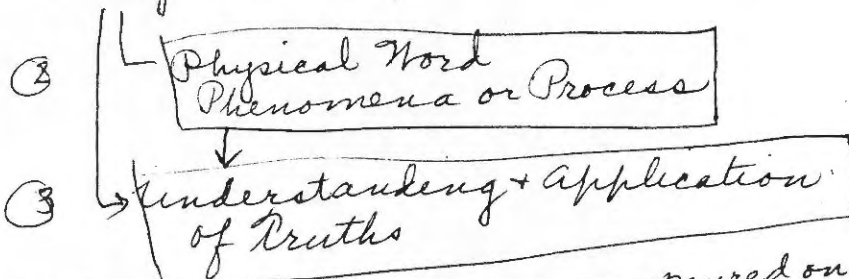 ② Physical Word
Phenomena or Process
③ Understandeng + Application
of Truths
on